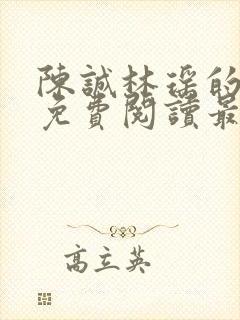 陳誠林瑤的
免費閱讀最
高立英